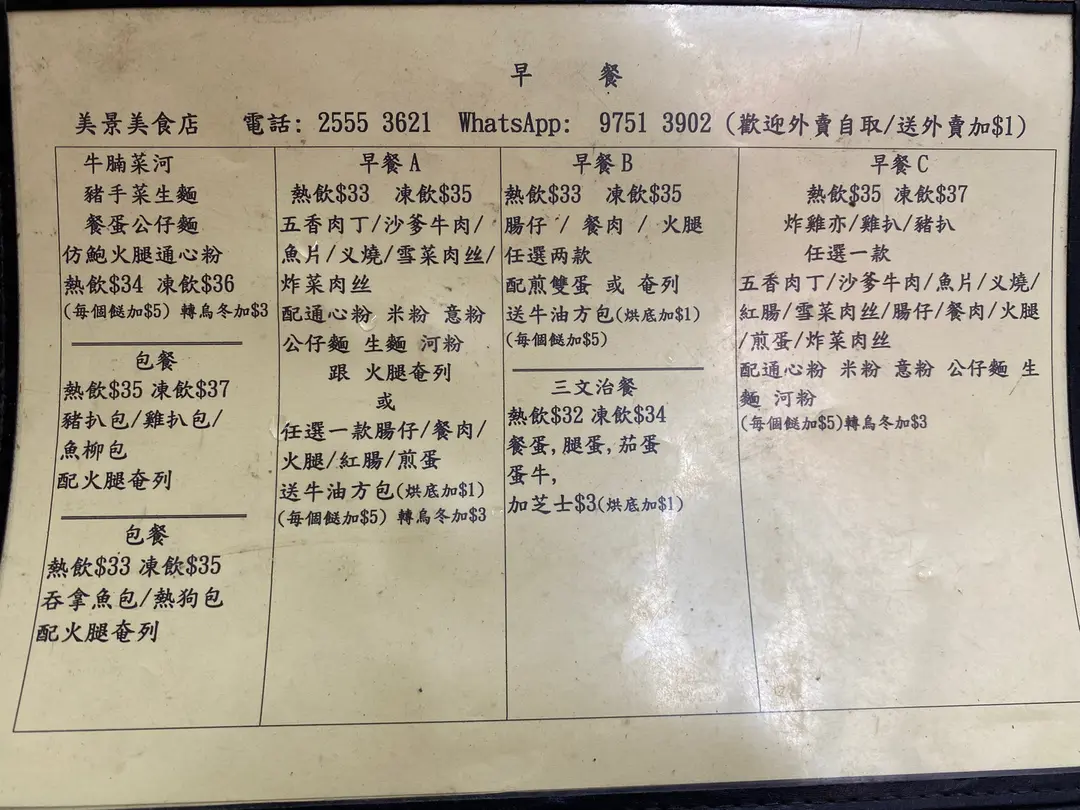 早 餐
美景美食店 電話: 2555 3621 WhatsApp: 9751 3902 (歡迎外賣自取/送外賣加$1)
牛腩菜河
豬手菜生麵
餐蛋公仔麵
仿鮑火腿通心粉
熱飲$34 凍飲$36
(每個餸加$5) 轉烏冬加$3
包餐
熱飲$35 凍飲$37
豬扒包/雞扒包/
魚柳包
配火腿奄列
包餐
熱飲$33 凍飲$35
吞拿魚包/熱狗包
配火腿奄列
早餐 A
熱飲$33 凍飲$35
五香肉丁/沙爹牛肉/
魚片/义燒/雪菜肉丝/
炸菜肉丝
配通心粉 米粉 意粉
公仔麵 生麵 河粉
跟 火腿奄列
或
任選一款腸仔/餐肉/
火腿/紅腸/煎蛋
送牛油方包(烘底加$1)
(每個餸加$5) 轉烏冬加$3
早餐 B
熱飲$33 凍飲$35
腸仔 / 餐肉 / 火腿
任選两款
配煎雙蛋 或 奄列
送牛油方包(烘底加$1)
(每個餸加$5)
三文治餐
熱飲$32 凍飲$34
餐蛋, 腿蛋, 茄蛋
蛋牛,
加芝士$3(烘底加$1)
早餐 C
熱飲$35 凍飲$37
炸雞亦/雞扒/豬扒
任選一款
五香肉丁/沙爹牛肉/魚片/义燒/
紅腸/雪菜肉丝/腸仔/餐肉/火腿
/煎蛋/炸菜肉丝
配通心粉 米粉 意粉 公仔麵 生
麵 河粉
(每個餸加$5)轉烏冬加$3